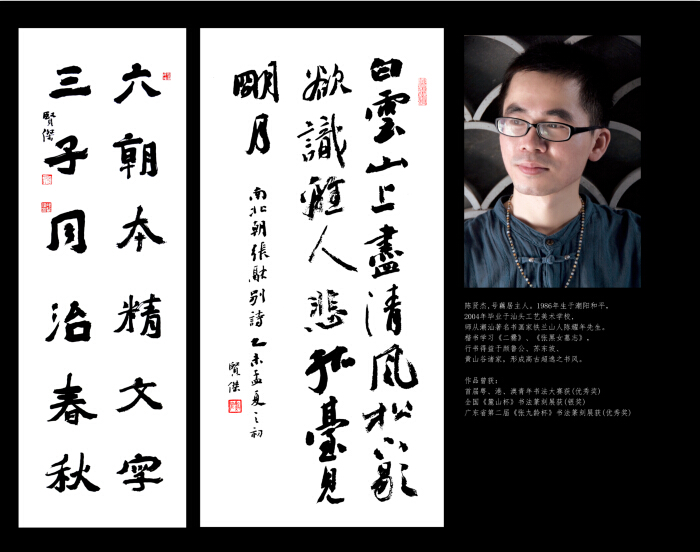 六朝本精文字
三子同治春秋
賢傑
白雲山上盡清風松下歇
欲識離人悲孤臺見
明月
南北朝張融别詩乙未孟夏之初
賢傑
陈贤杰,号藕居主人。1986年生于潮阳和平。
2004年毕业于汕头工艺美术学校,
师从潮汕著名书画家铁兰山人陈耀年先生。
楷书学习《二爨》、《张黑女墓志》。
行书得益于颜鲁公、苏东坡、
黄山谷诸家。形成高古超逸之书风。
作品曾获:
首届粤、港、澳青年书法大赛获(优秀奖)
全国《麓山杯》书法篆刻展获(银奖)
广东省第二届《张九龄杯》书法篆刻展获(优秀奖)